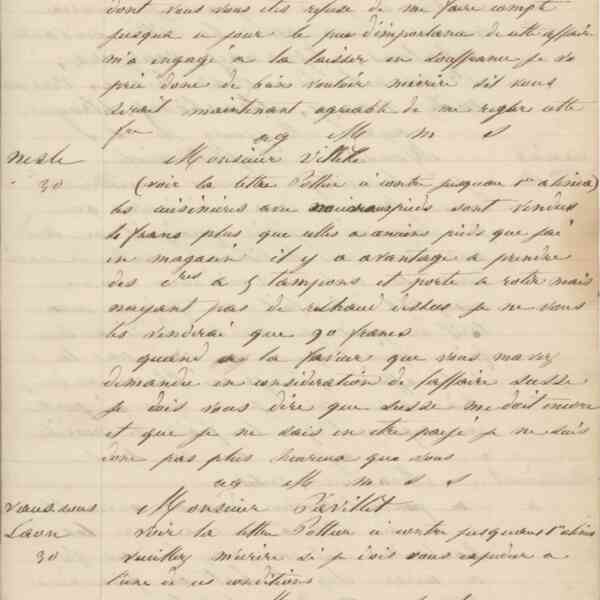 dont vous vous etes refusé de me faire compte
jusqua ce jour le peu d'importance de cette affaire
m'a engagé a la laisser en souffrance je vs
prie donc de bien vouloir mecrire sil vous
serait maintenant agreable de me regler cette
fre
ag M m s
Nesle Monsieur Villete
30 (voir la lettre Pottier ci contre jusquau 1er alinéa)
les cuisinieres avec nouveaux pieds sont vendues
le franc plus que celles a anciens pieds que jai
en magasin il y a avantage a prendre
des cres a 5 tampons et porte a rotir mais
nayant pas de rechaud dessus je ne vous
les venderai que 90 francs
quand a la faveur que vous mavez
demandée en consideration de laffaire Susse
je dois vous dire que Susse me doit encore
et que je ne sais en etre payé je ne suis
donc pas plus heureux que vous
ag M m s s
Vaux sous Monsieur Pévillet
Laon voir la lettre Pottier ci contre jusquau 1er alinea
30 veuillez mecrire si je dois vous expedier a
l'une de ces conditions